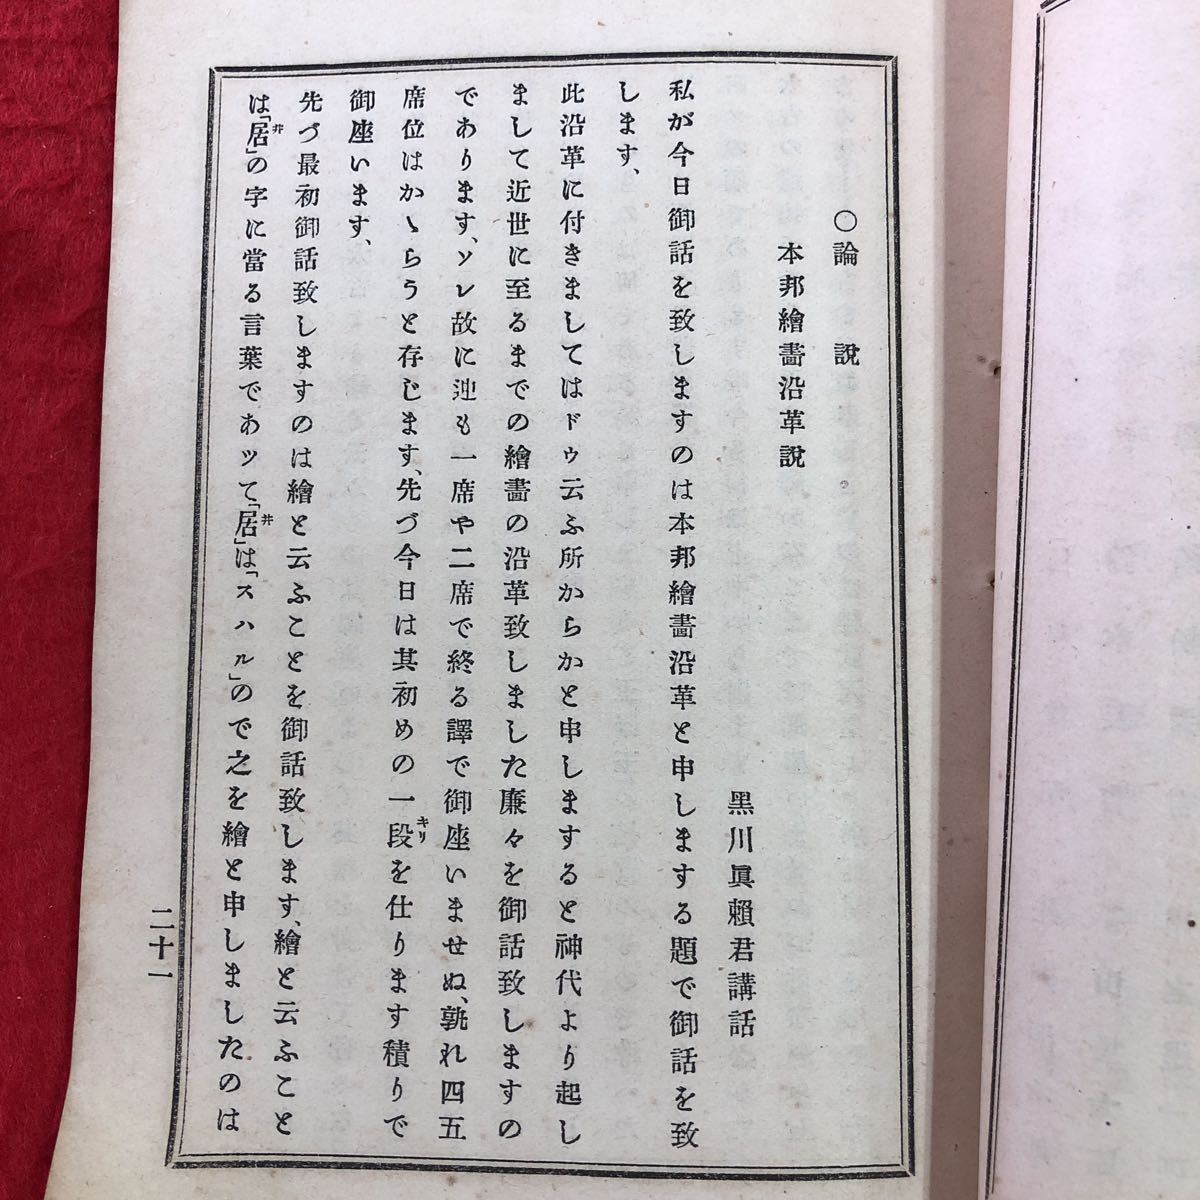 ○論說
本邦繪畵沿革說
黑川眞賴君講話
私が今日御話を致しますのは本邦繪畵沿革と申しまする題で御話を致
します、
此沿革に付きましてはドゥ云ふ所からかと申しますると神代より起し
まして近世に至るまでの繪畵の沿革致しました廉々を御話致しますの
であります、ソレ故に迚も一席や二席で終る譯で御座いませぬ、孰れ四五
席位はかゝらうと存じます、先づ今日は其初めの一段キリを仕ります積りで
御座います、
先づ最初御話致しますのは繪と云ふことを御話致します、繪と云ふこと
は「居井」の字に當る言葉であッて「居井」は「スハル」ので之を繪と申しましたのは
二十一